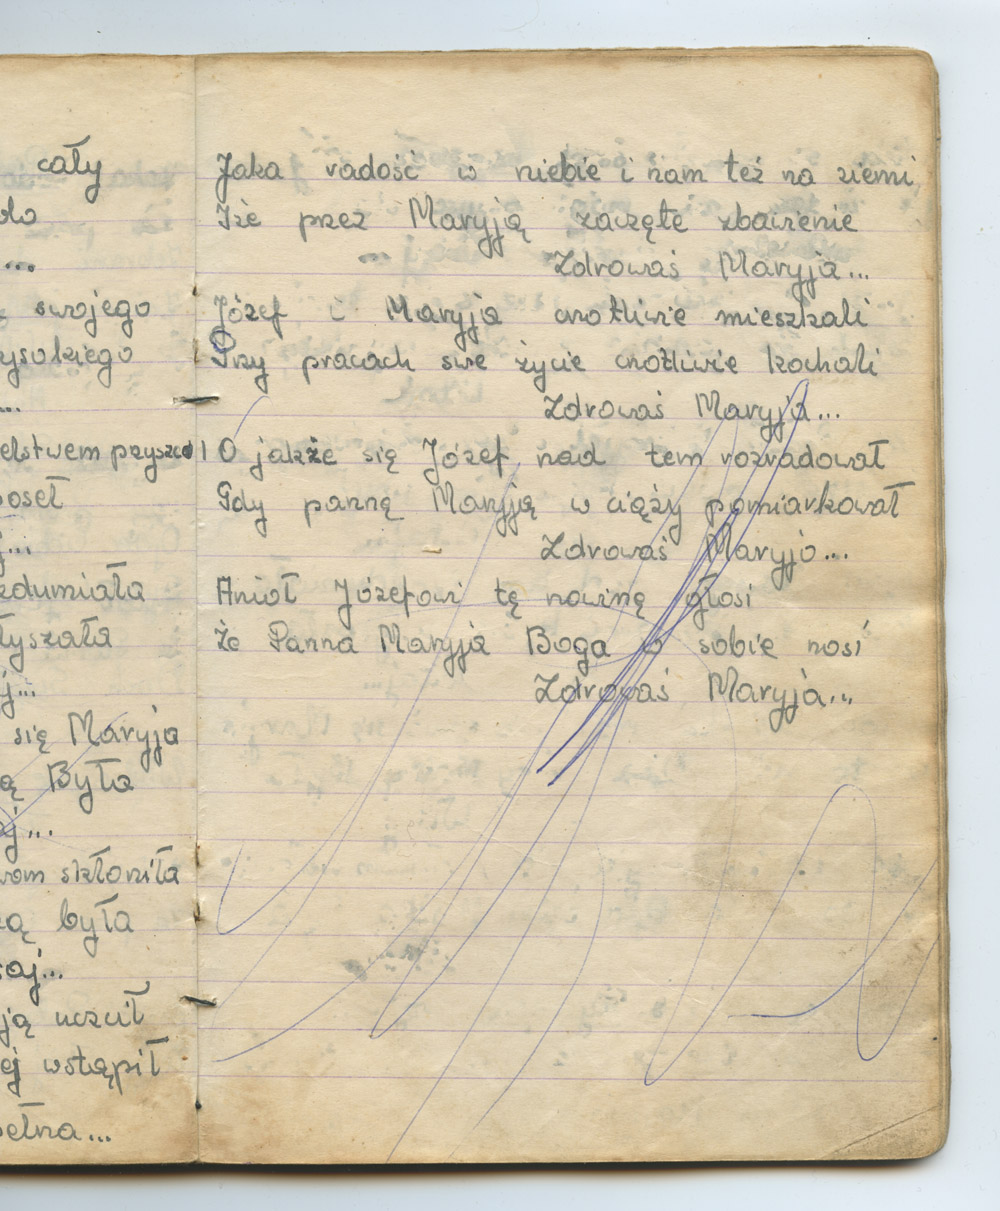 cały
...
swojego
...
przyszed
poseł
...
się Maryja
Była
...
skłoniła
była
...
uczcił
wstąpił
...
Jaka radość w niebie i nam też na ziemi
Iże przez Maryją zaczęte zbawienie
... Zdrowaś Maryja...
Józef i Maryja cnotliwie mieszkali
Przy pracach swe życie cnotliwie kochali
Zdrowaś Maryja...
O jakże się Józef nad tem rozradował
Gdy pannę Maryją w ciąży pomiarkował
Zdrowaś Maryjo...
Anioł Józefowi tę nowinę głosi
Że Panna Maryja Boga w sobie nosi
Zdrowaś Maryja...